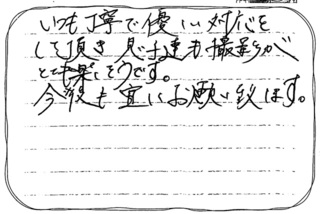 いつも丁寧で優しい対応を
して頂き 息子達も撮影が
とても楽しそうです。
今後も宜しくお願い致します。